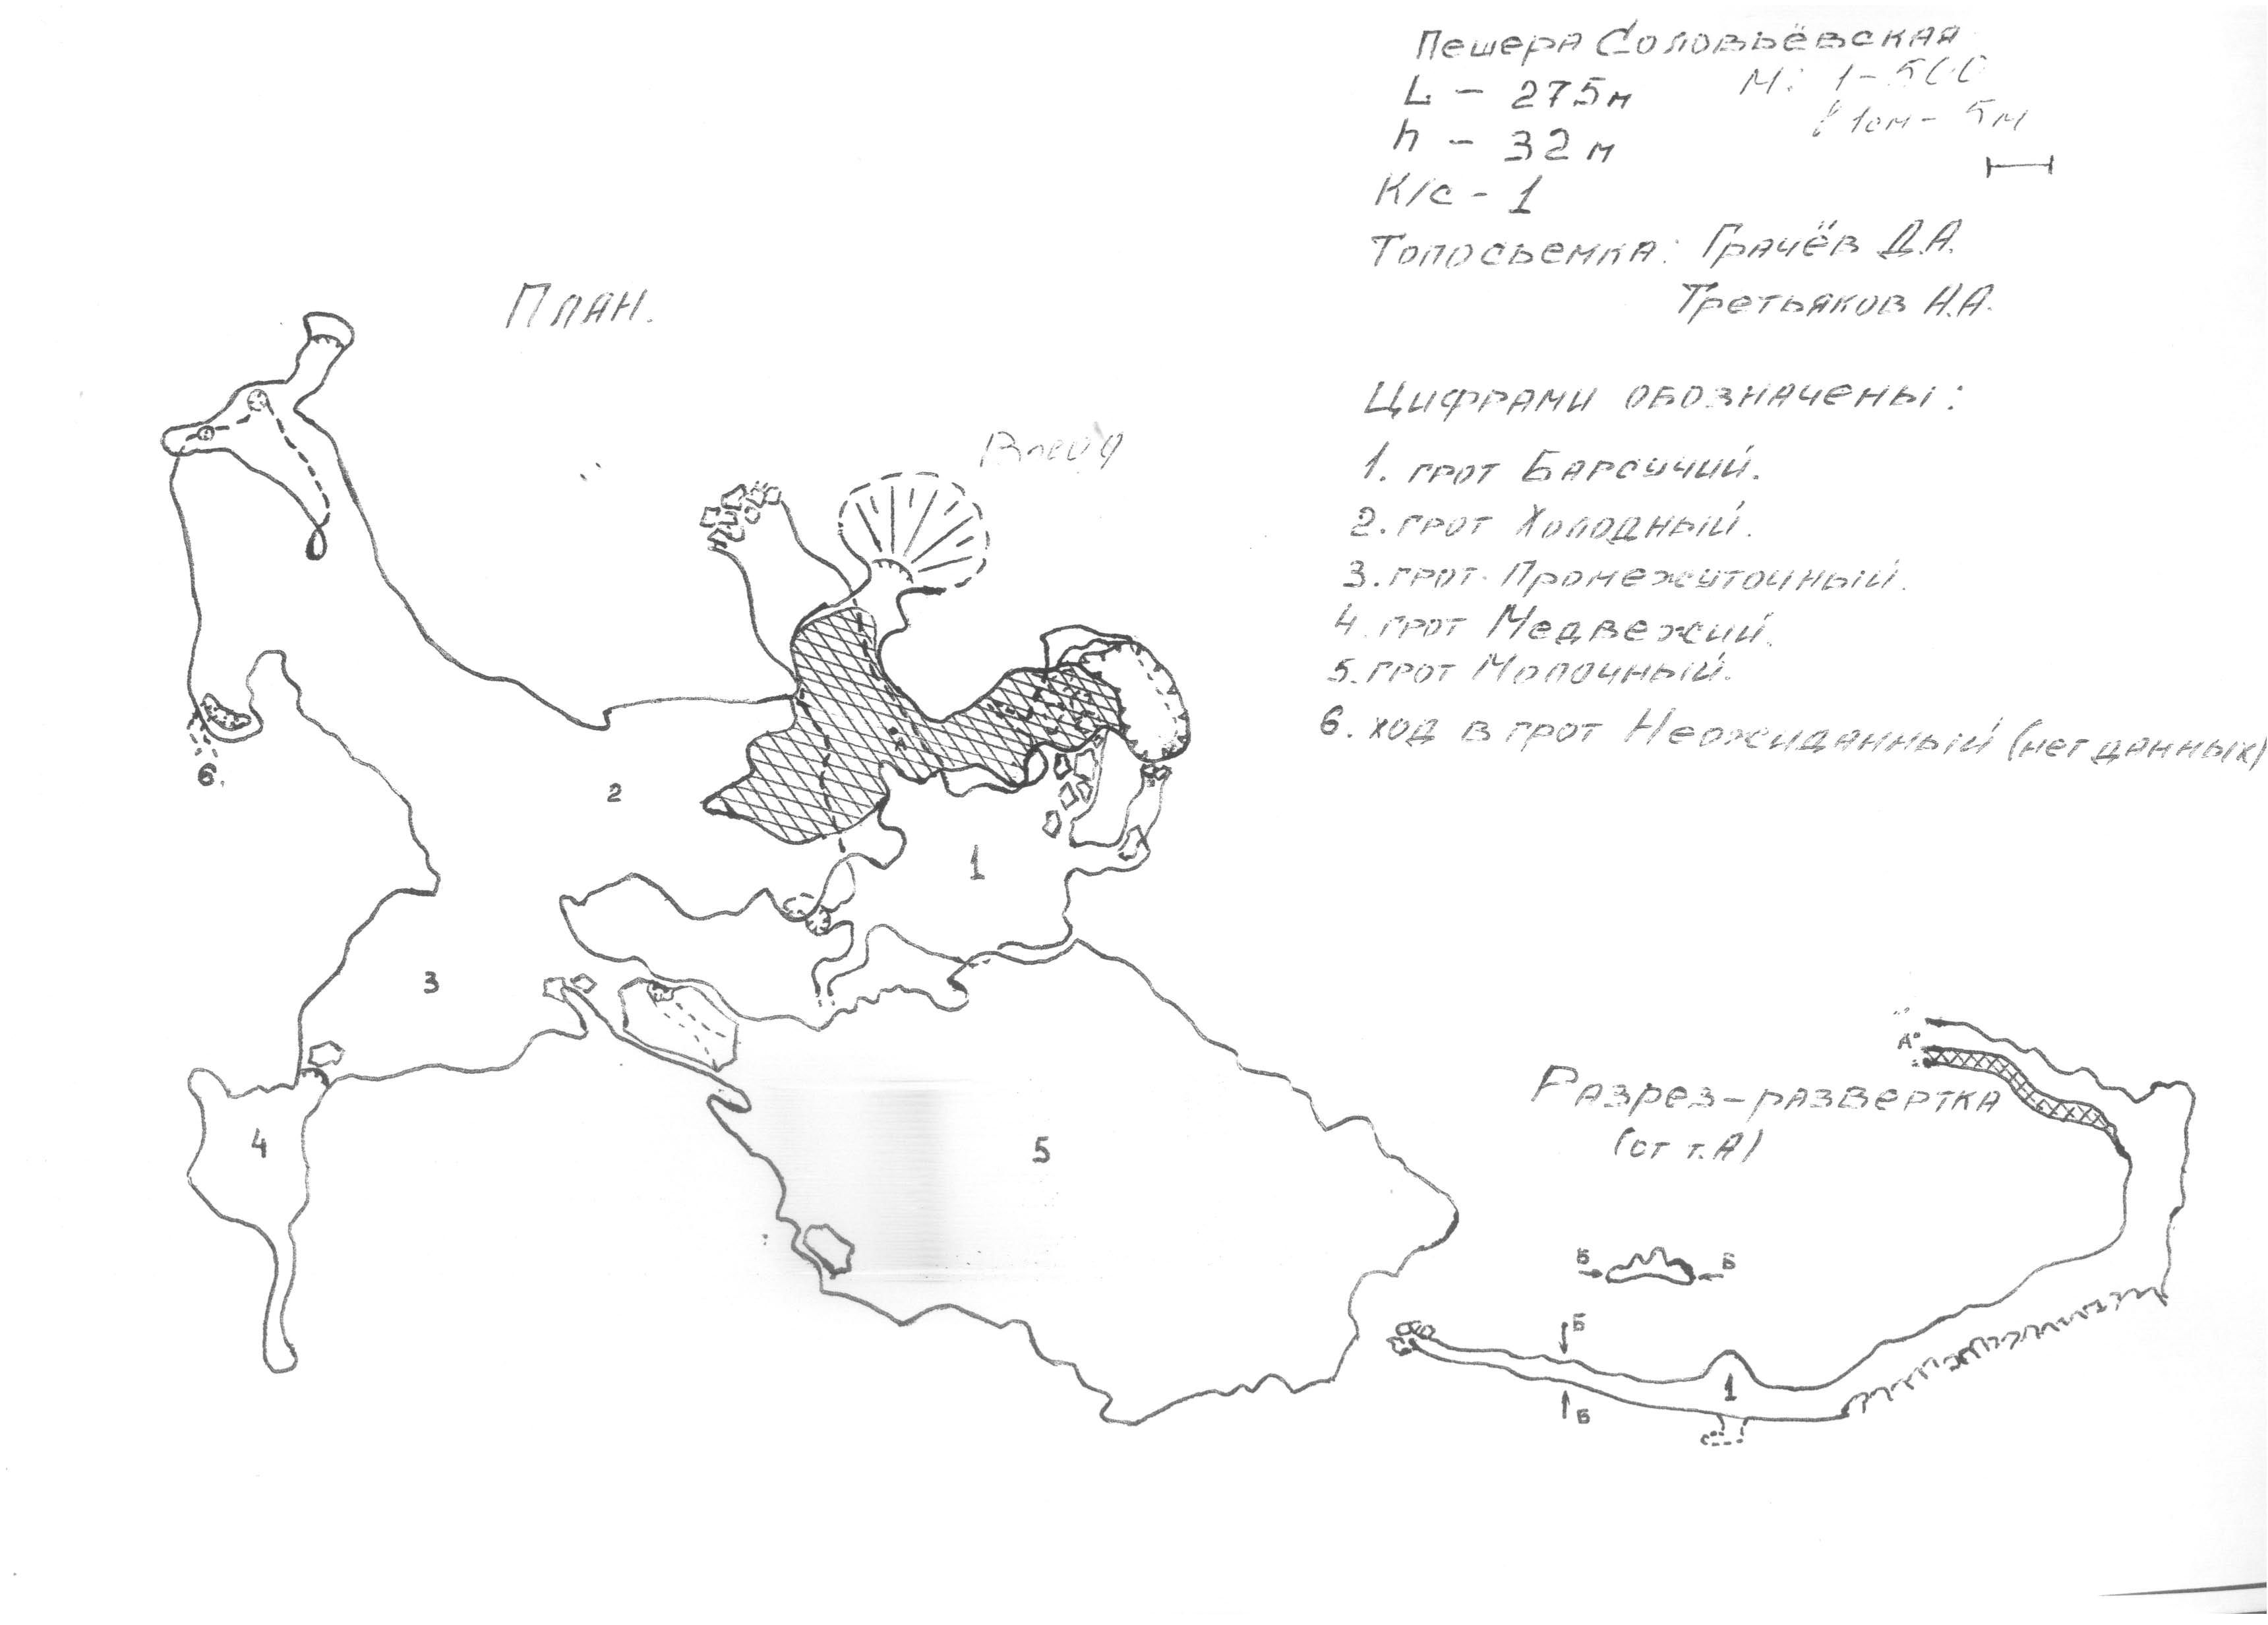 Пешера Соловьёвская
L - 275м
М: 1-500
h - 32м
1см - 5м
К/с - 1
Топосьемка: Грачёв Д.А.
Третьяков Н.А.
План.
Цифрами обозначены:
1. грот Барсучий.
2. грот Холодный.
3. грот Промежуточный.
4. грот Медвежий.
5. грот Молочный.
6. ход в грот Неожиданный (нет данных)
А
6.
2
1
3
4
5
А
Разрез-развертка
(от т.А)
Б
Б
Б
1
Б